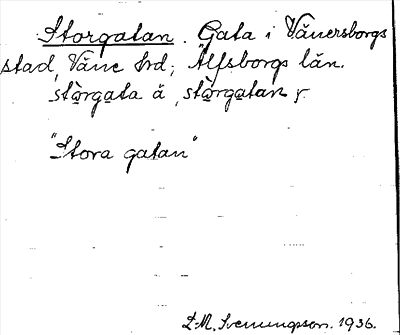 Storgatan. Gata i Vänersborgs
stad, Väne hrd; Älfsborgs län.
stòrgata å, stòrgatan r.
"Stora gatan"
L-M. Svenungson. 1936.